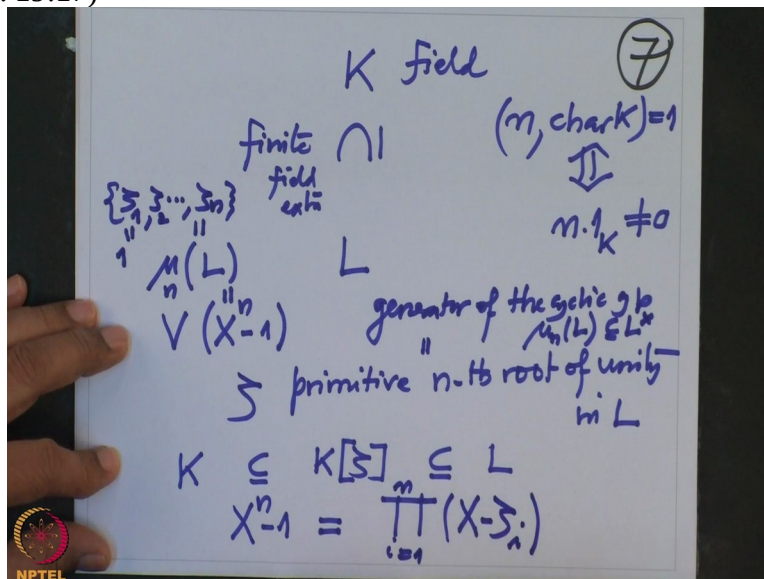 : 25:27)
K field
7
finite ∩|
field
extn
(n, char K) = 1
⇕
n·1_K ≠ 0
{ζ_1, ζ_2, ..., ζ_n}
1 = ζ_1
μ_n(L)
L
V(X^n-1)
generator of the cyclic grp
μ_n(L) ⊆ L^×
ζ primitive n-th root of unity
in L
K ⊆ K[ζ] ⊆ L
X^n-1 = ∏_{i=1}^{n} (X-ζ_i)
NPTEL